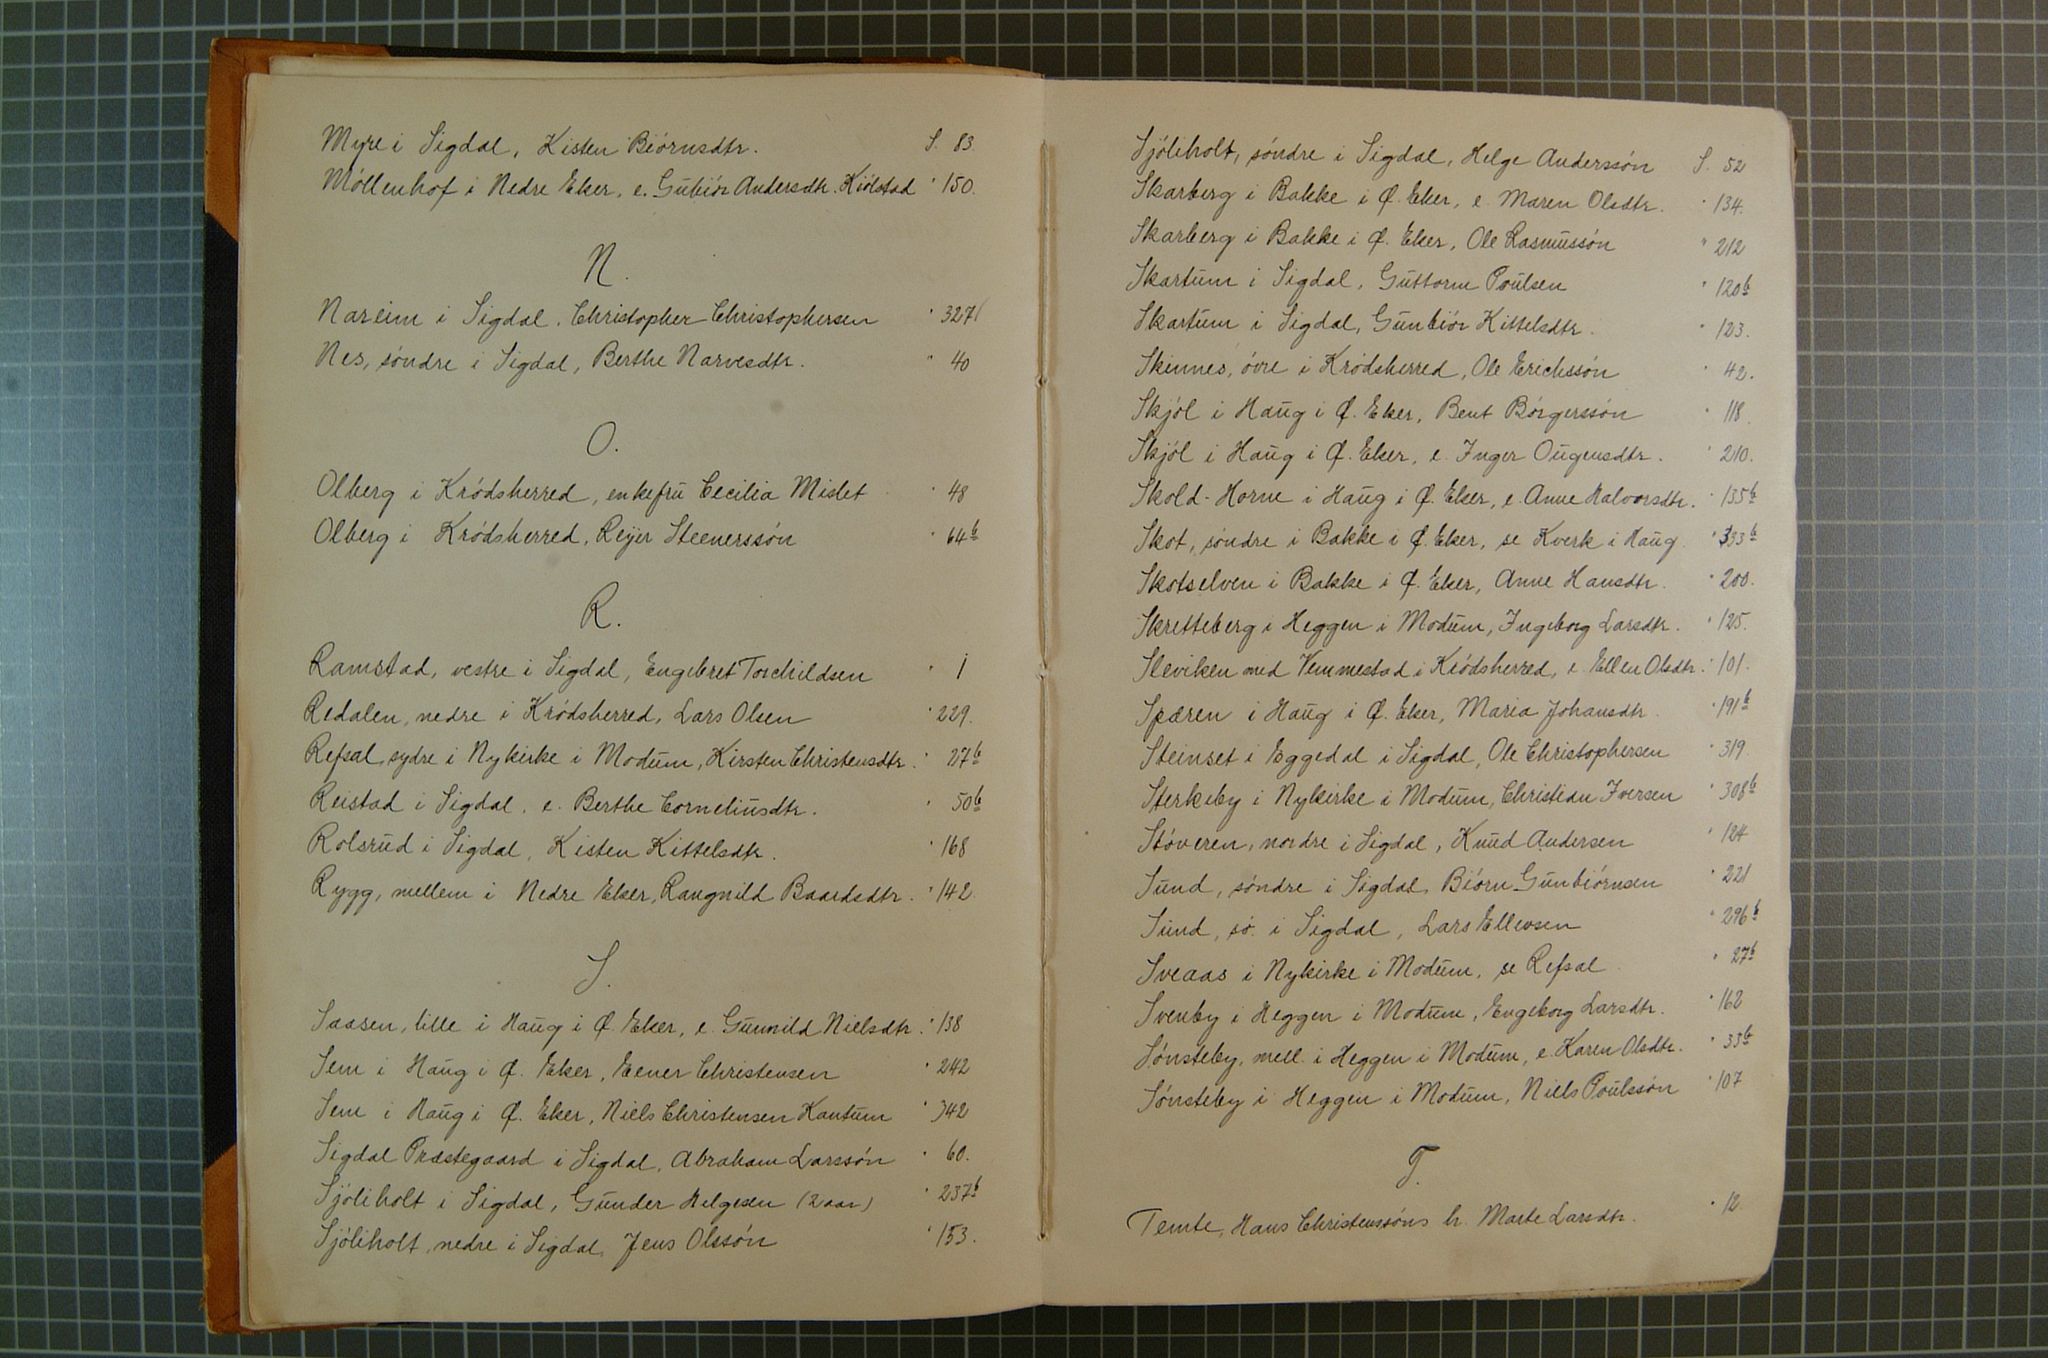 Myre i Sigdal, Kisten Biórnsdtr. S. 83
Móllenhof i Nedre Eker, e. Gubiór Andersdtr. Kiólstad " 150.
N.
Nareim i Sigdal, Christopher Christophersen " 327
Nes, sóndre i Sigdal, Berthe Narvesdtr. " 40
O.
Olberg i Kródsherred, enkefru Cecilia Mislet " 48
Olberg i Kródsherred, Reijer Steenerssón " 64b
R.
Ramstad, vestre i Sigdal, Engebret Torchildsen " 1
Redalen, nedre i Kródsherred, Lars Olsen " 229.
Refsal, sydre i Nykirke i Modum, Kirsten Christensdtr. " 27b
Reistad i Sigdal, e. Berthe Corneliusdtr. " 50b
Rolsrud i Sigdal, Kisten Kittelsdtr. " 168
Rygg, mellem i Nedre Eker, Rangnild Baardsdtr. " 142.
S.
Saasen, lille i Haug i Ø. Eker, e. Gunnild Nielsdtr. " 138
Sem i Haug i Ø. Eker, Eener Christensen " 242
Sem i Haug i Ø. Eker, Niels Christensen Kantum " 342
Sigdal Præstegaard i Sigdal, Abraham Larssón " 60.
Sjóliholt i Sigdal, Gunder Helgesen (2 aar) " 237b
Sjóliholt, nedre i Sigdal, Jens Olssón " 153.
Sjóliholt, sóndre i Sigdal, Helge Anderssón S. 52
Skarberg i Bakke i Ø. Eker, e. Maren Olsdtr. " 134.
Skarberg i Bakke i Ø. Eker, Ole Rasmussón " 212
Skartum i Sigdal, Guttorm Poulsen " 120b
Skartum i Sigdal, Gunbiór Kittelsdtr. " 123.
Skinnes, óvre i Kródsherred, Ole Erichssón " 42.
Skjól i Haug i Ø. Eker, Bent Bórgerssón " 118
Skjól i Haug i Ø. Eker, e. Inger Ougensdtr. " 210.
Skold-Horne i Haug i Ø. Eker, e. Anne Halvorsdtr. " 135b
Skot, sóndre i Bakke i Ø. Eker, se Kverk i Haug " 333b
Skotselven i Bakke i Ø. Eker, Anne Hansdtr. " 200.
Skretteberg i Heggen i Modum, Ingeborg Larsdtr. " 125.
Sleviken med Vemmestad i Kródsherred, e. Ellen Olsdtr. " 101.
Spæren i Haug i Ø. Eker, Maria Johansdtr. " 191b
Steinset i Eggedal i Sigdal, Ole Christophersen " 319
Sterkeby i Nykirke i Modum, Christian Iversen " 308b
Stóveren, nordre i Sigdal, Knud Andersen " 124
Sund, sóndre i Sigdal, Biórn Gunbiórnsen " 221
Sund, só. i Sigdal, Lars Ellevsen " 296b
Sveaas i Nykirke i Modum, se Refsal " 27b
Svenby i Heggen i Modum, Engeborg Larsdtr. " 162
Sónsteby, mell. i Heggen i Modum, e. Karen Olsdtr. " 33b
Sónsteby i Heggen i Modum, Niels Poulssón " 107
T.
Temte, Hans Christenssóns h. Marte Larsdtr. " 12.